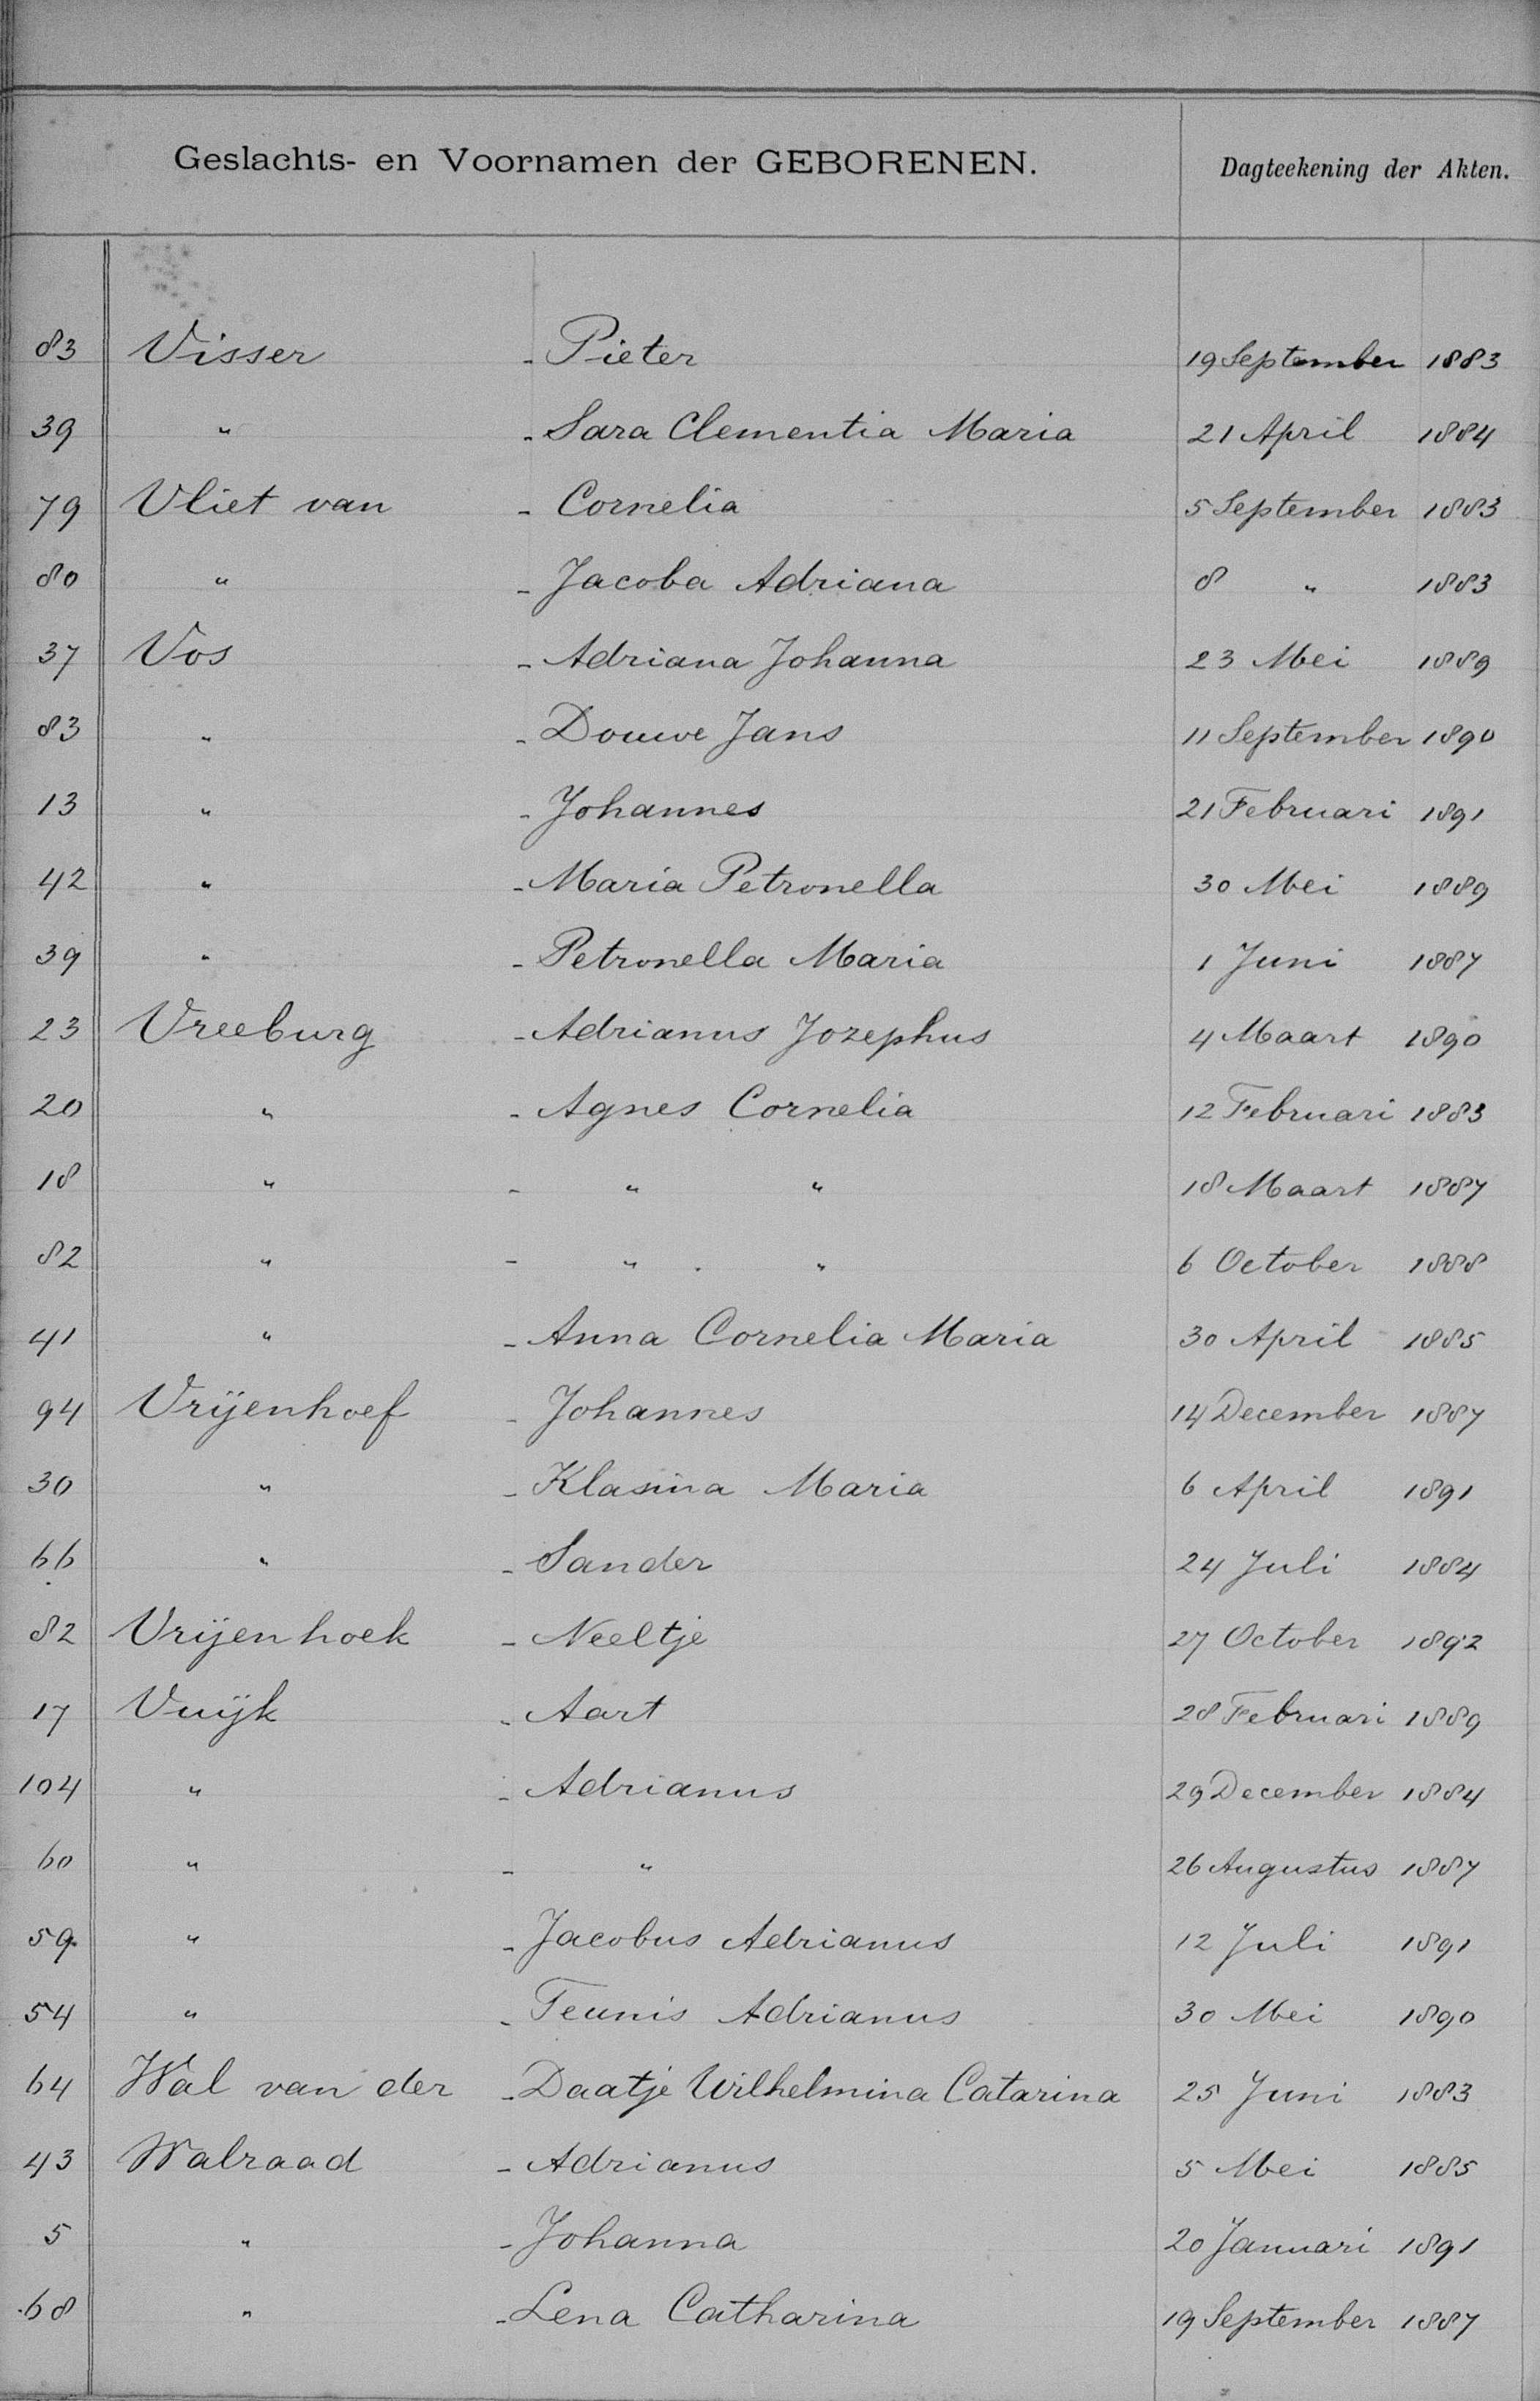 Geslachts- en Voornamen der GEBORENEN. Dagteekening der Akten.
83 Visser - Pieter 19 September 1883
39 " - Sara Clementia Maria 21 April 1884
79 Vliet van - Cornelia 5 September 1883
80 " - Jacoba Adriana 8 " 1883
37 Vos - Adriana Johanna 23 Mei 1889
83 " - Douwe Jans 11 September 1890
13 " - Johannes 21 Februari 1891
42 " - Maria Petronella 30 Mei 1889
39 " - Petronella Maria 1 Juni 1887
23 Vreeburg - Adrianus Jozephus 4 Maart 1890
20 " - Agnes Cornelia 12 Februari 1883
18 " - " " 18 Maart 1887
82 " - " " 6 October 1888
41 " - Anna Cornelia Maria 30 April 1885
94 Vrijenhoef - Johannes 14 December 1887
30 " - Klasina Maria 6 April 1891
66 " - Sander 24 Juli 1884
82 Vrijenhoek - Neeltje 27 October 1892
17 Vuijk - Aart 28 Februari 1889
104 " - Adrianus 29 December 1884
60 " - " 26 Augustus 1887
59 " - Jacobus Adrianus 12 Juli 1891
54 " - Teunis Adrianus 30 Mei 1890
64 Wal van der - Daatje Wilhelmina Catarina 25 Juni 1883
43 Walraad - Adrianus 5 Mei 1885
5 " - Johanna 20 Januari 1891
68 " - Lena Catharina 19 September 1887